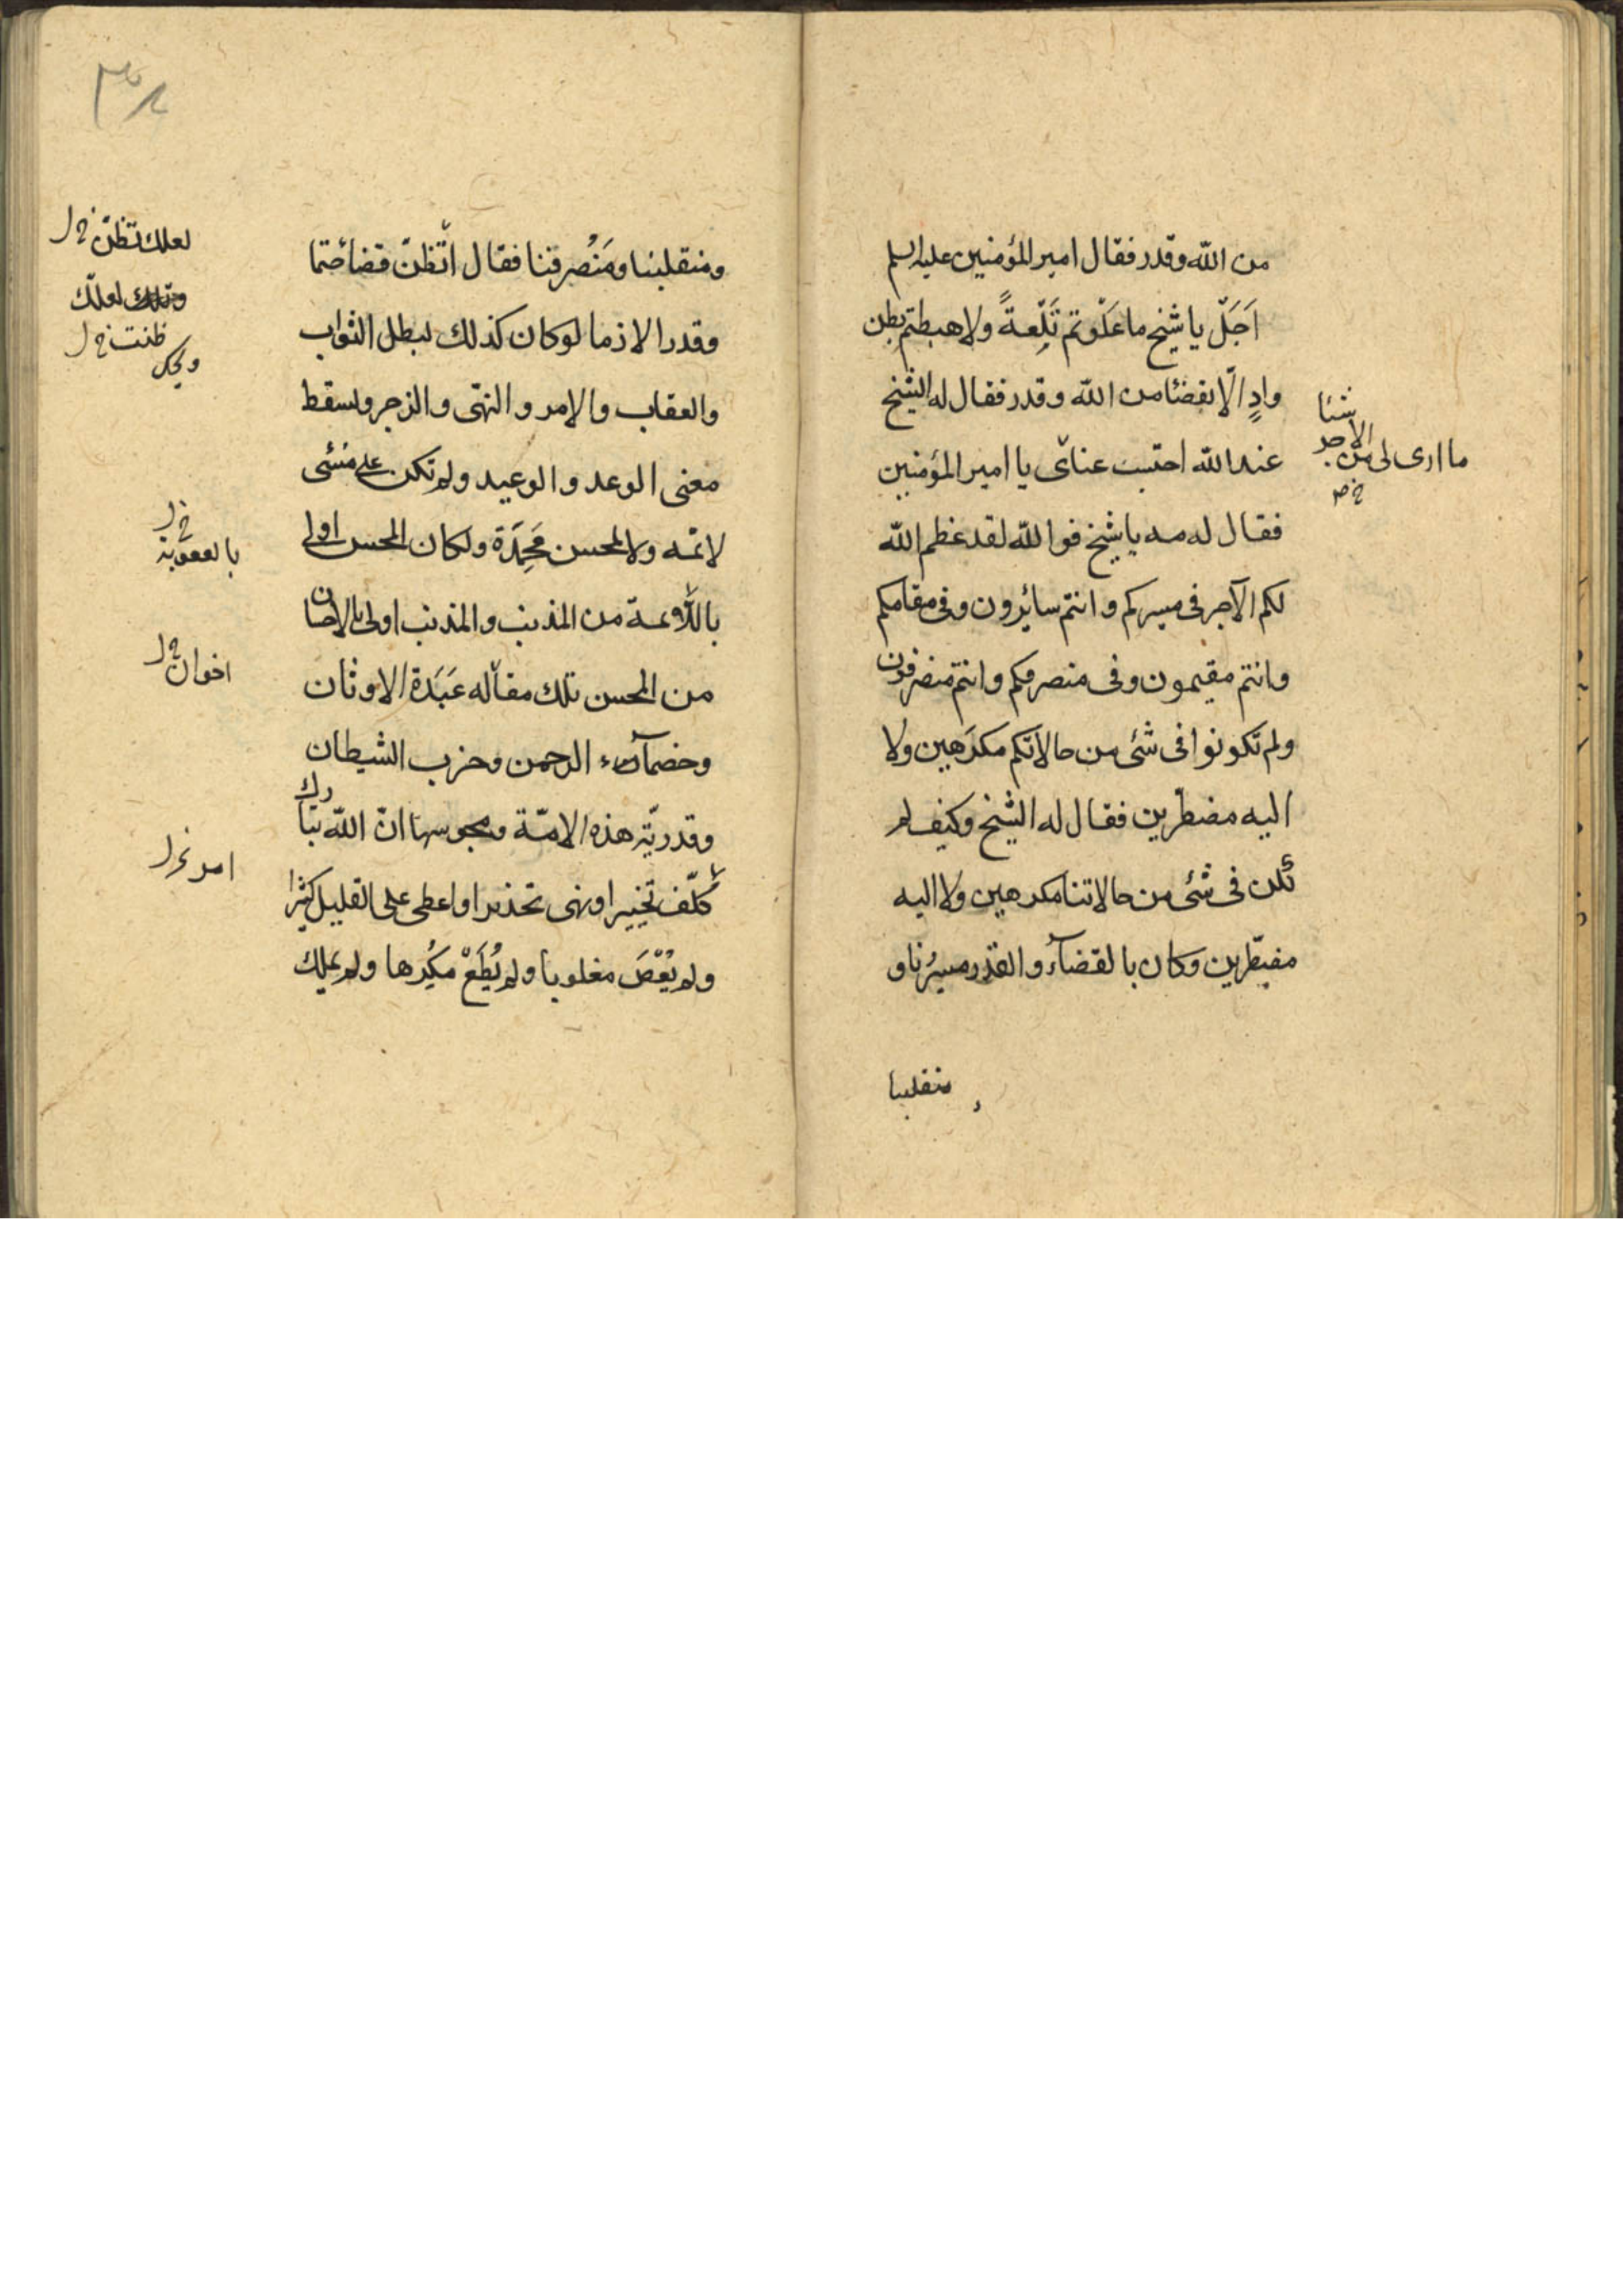 من الله وقدر فقال امير المؤمنين عليه السلم
اَجَلْ يا شيخ ما عَلَوتم تَلْعةً ولا هبطتم بطن
وادٍ الّا بقضٓاء من الله وقدر فقال له الشيخ
عند الله احتسب عنائى يا امير المؤمنين
فقال له مه يا شيخ فوالله لقد عظم الله
لكم الاجر فى مسيركم وانتم سائرون وفى مقامكم
وانتم مقيمون وفى منصرفكم وانتم منصرفون
ولم تكونوا فى شئ من حالاتكم مكرَهين ولا
اليه مضطرّين فقال له الشيخ وكيف لم
نكن فى شئ من حالاتنا مكرهين ولا اليه
مضطرّين وكان بالقضآء والقدر مسيرُنا و
منقلبنا
شيئا
ما ارى لى من الاجر
ومنقلبنا ومَنْصرفنا فقال أتظنّ قضاءً حتما
وقدرا لازما لو كان كذلك لبطل الثواب
والعقاب والامر والنهى والزجر ولسقط
معنى الوعد والوعيد ولم تكن على مسئى
لائمة ولا لمحسن مَحمِدَة ولكان المحسن اولى
باللائمة من المذنب والمذنب اولى بالاحسان
من المحسن تلك مقالة عَبَدَة الاوثان
وخصمآء الرحمن وحزب الشيطان
وقدريّة هذه الامّة ومجوسها انّ الله تبارك
كلّف تخييرا ونهى تحذيرا واعطى على القليل كثيرا
ولم يُعْصَ مغلوبا ولم يُطَعْ مكرها ولم يملك
لعلك تظنّ خ ل
لعلّك
ظننت خ ل
ويحك
بالعقوبة خ ل
اخوان خ ل
امر خ ل